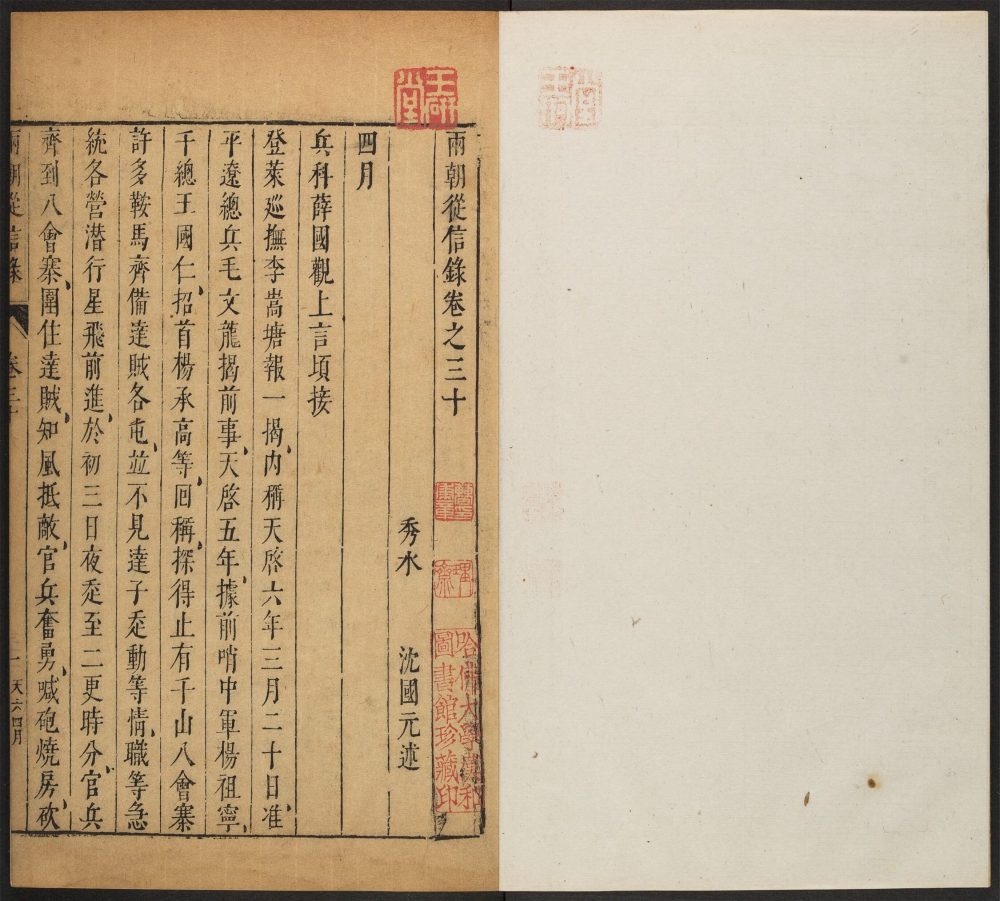 兩朝從信錄卷之三十
秀水 沈國元述
四月
兵科薛國觀上言頃接
登萊廵撫李嵩塘報一揭內稱天啓六年三月二十日准
平遼總兵毛文龍揭前事天啓五年據前哨中軍楊祖寧
千總王國仁招首楊承高等回稱探得止有千山八會寨
許多鞍馬齊備達賊各屯並不見達子走動等情職等急
統各營潛行星飛前進於初三日夜走至二更時分官兵
齊到八會寨圍住達賊知風抵敵官兵奮勇喊砲燒房砍
兩朝從信錄 卷三十 一 天六四月
研堂
哈佛大學漢和圖書館珍藏印